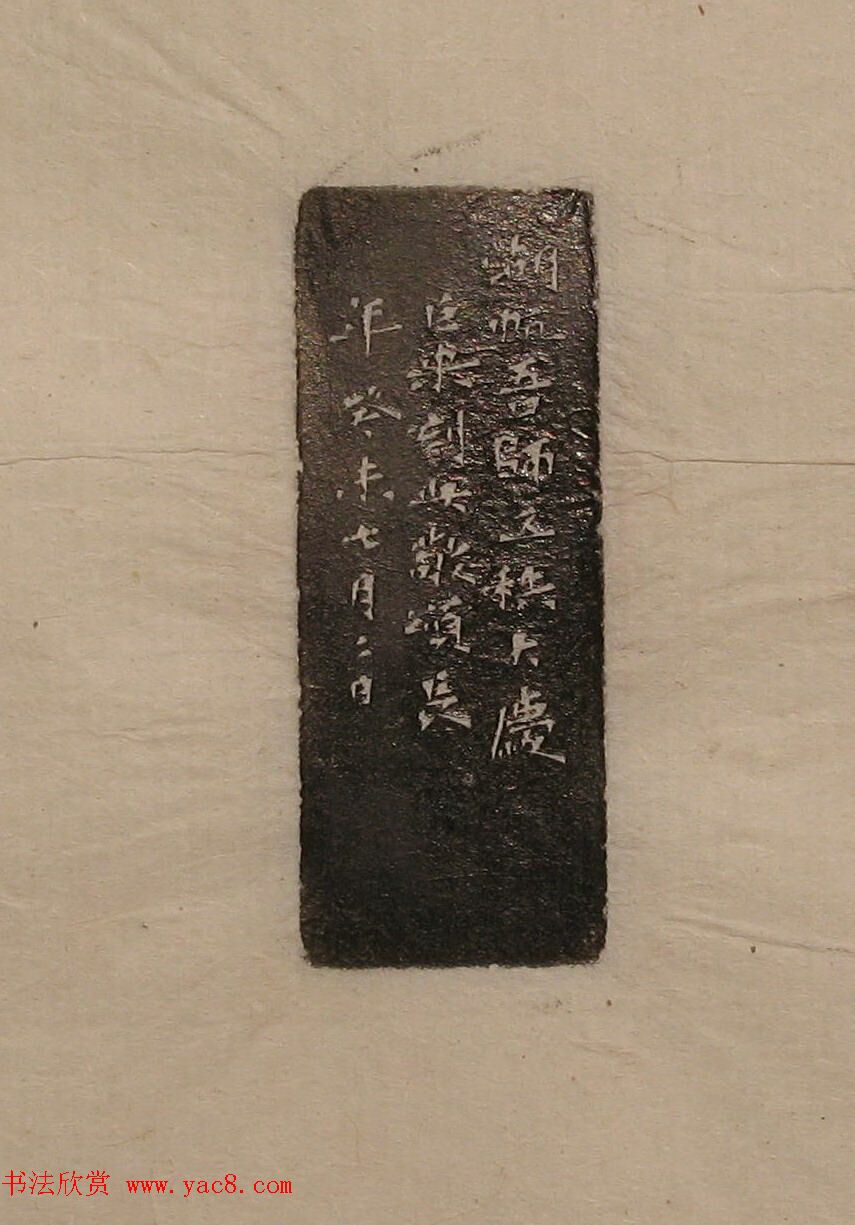 湖帆吾師五秩大慶
巨来刻此敬頌長
年癸未七月二日
书法欣赏 www.yac8.com